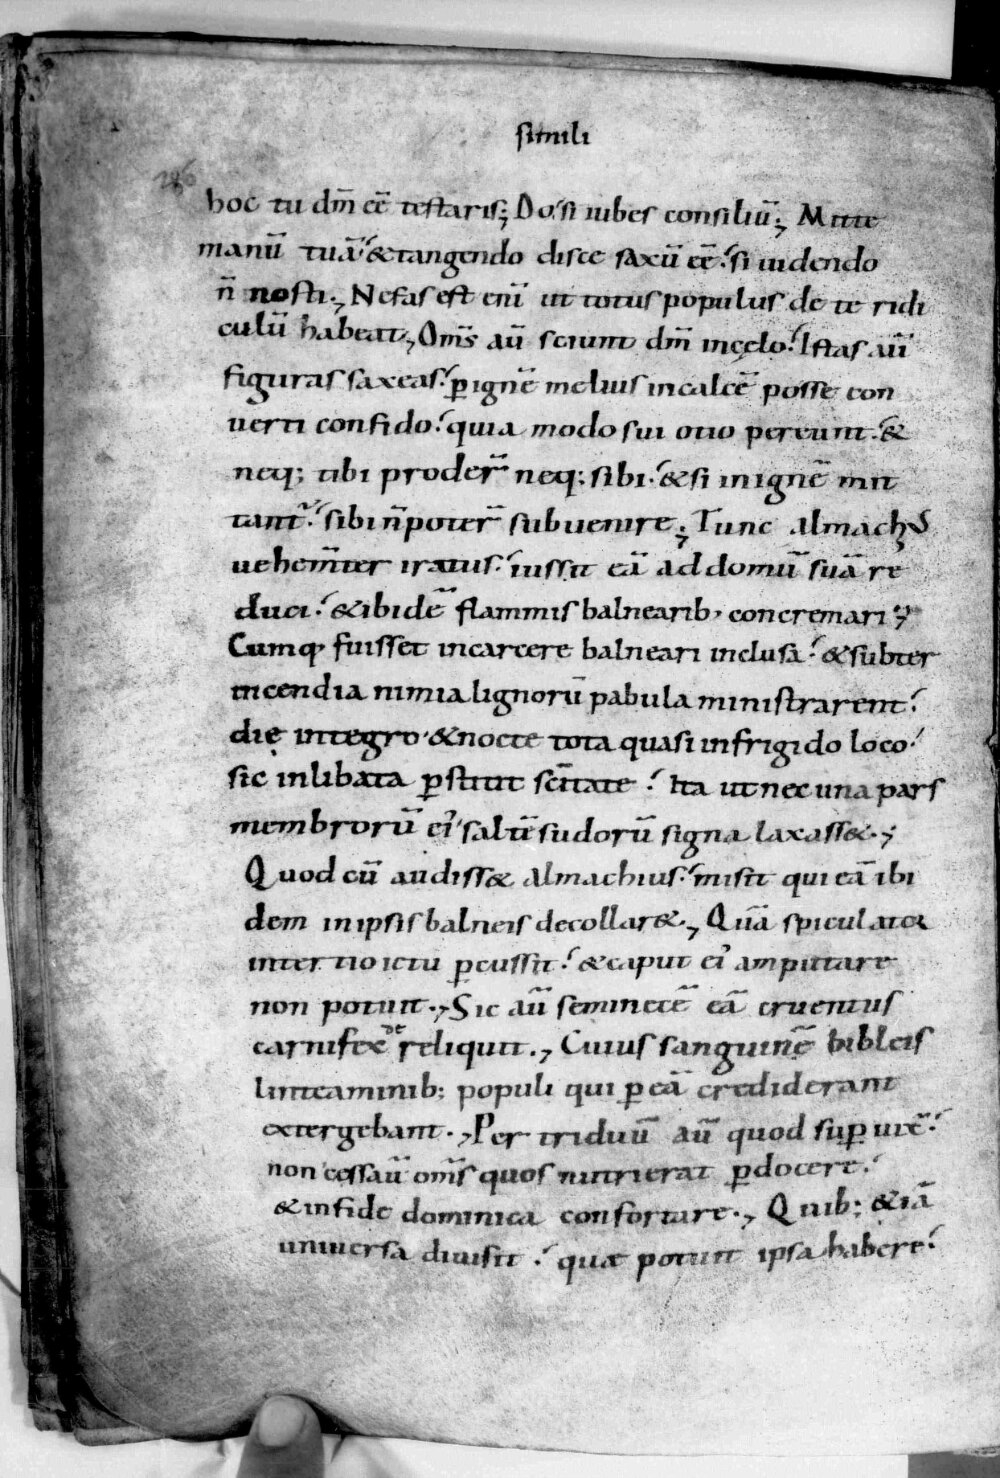 simili
286
hoc tu dm̄ eē testaris; Do si iubes consiliū; Mitte
manū tuā & tangendo disce saxū eē si uidendo
n̄ nosti; Nefas est enī ut totus populus de te ridi
culū habeat; Om̄s aū sciunt dm̄ in cęlo Istas aū
figuras saxeas p̱ ignē melius in calcē posse con
uerti confido quia modo sui otio pereunt &
neq; tibi proder̄ neq; sibi & si in ignē mit
tant̄ sibi n̄ poter̄ subuenire; Tunc almachꝰ
uehem̄ter iratus iussit eā ad domū suā re
duci & ibidē flammis balnearib, concremari;
Cumq, fuisset in carcere balneari inclusa & subter
incendia nimia lignorū pabula ministrarent
die integro & nocte tota quasi in frigido loco
sic inlibata p̱stitit sc̄itate Ita ut nec una pars
membrorū ei' saltē sudorū signa laxass&;
Quod cū audiss& almachius misit qui eā ibi
dem in ipsis balneis decollar&; Quā spiculator
in tertio ictu p̱cussit & caput ei' amputare
non potuit; Sic aū seminecē eā cruentus
carnifex dereliquit; Cuius sanguinē bibleis
linteaminib; populi qui p̱ eā crediderant
extergebant; Per triduū aū quod sup̱ uix̄
non cessaū om̄s quos nutrierat p̱docere
& in fide dominica confortare; Quib; & iā
uniuersa diuisit quæ potuit ipsa habere